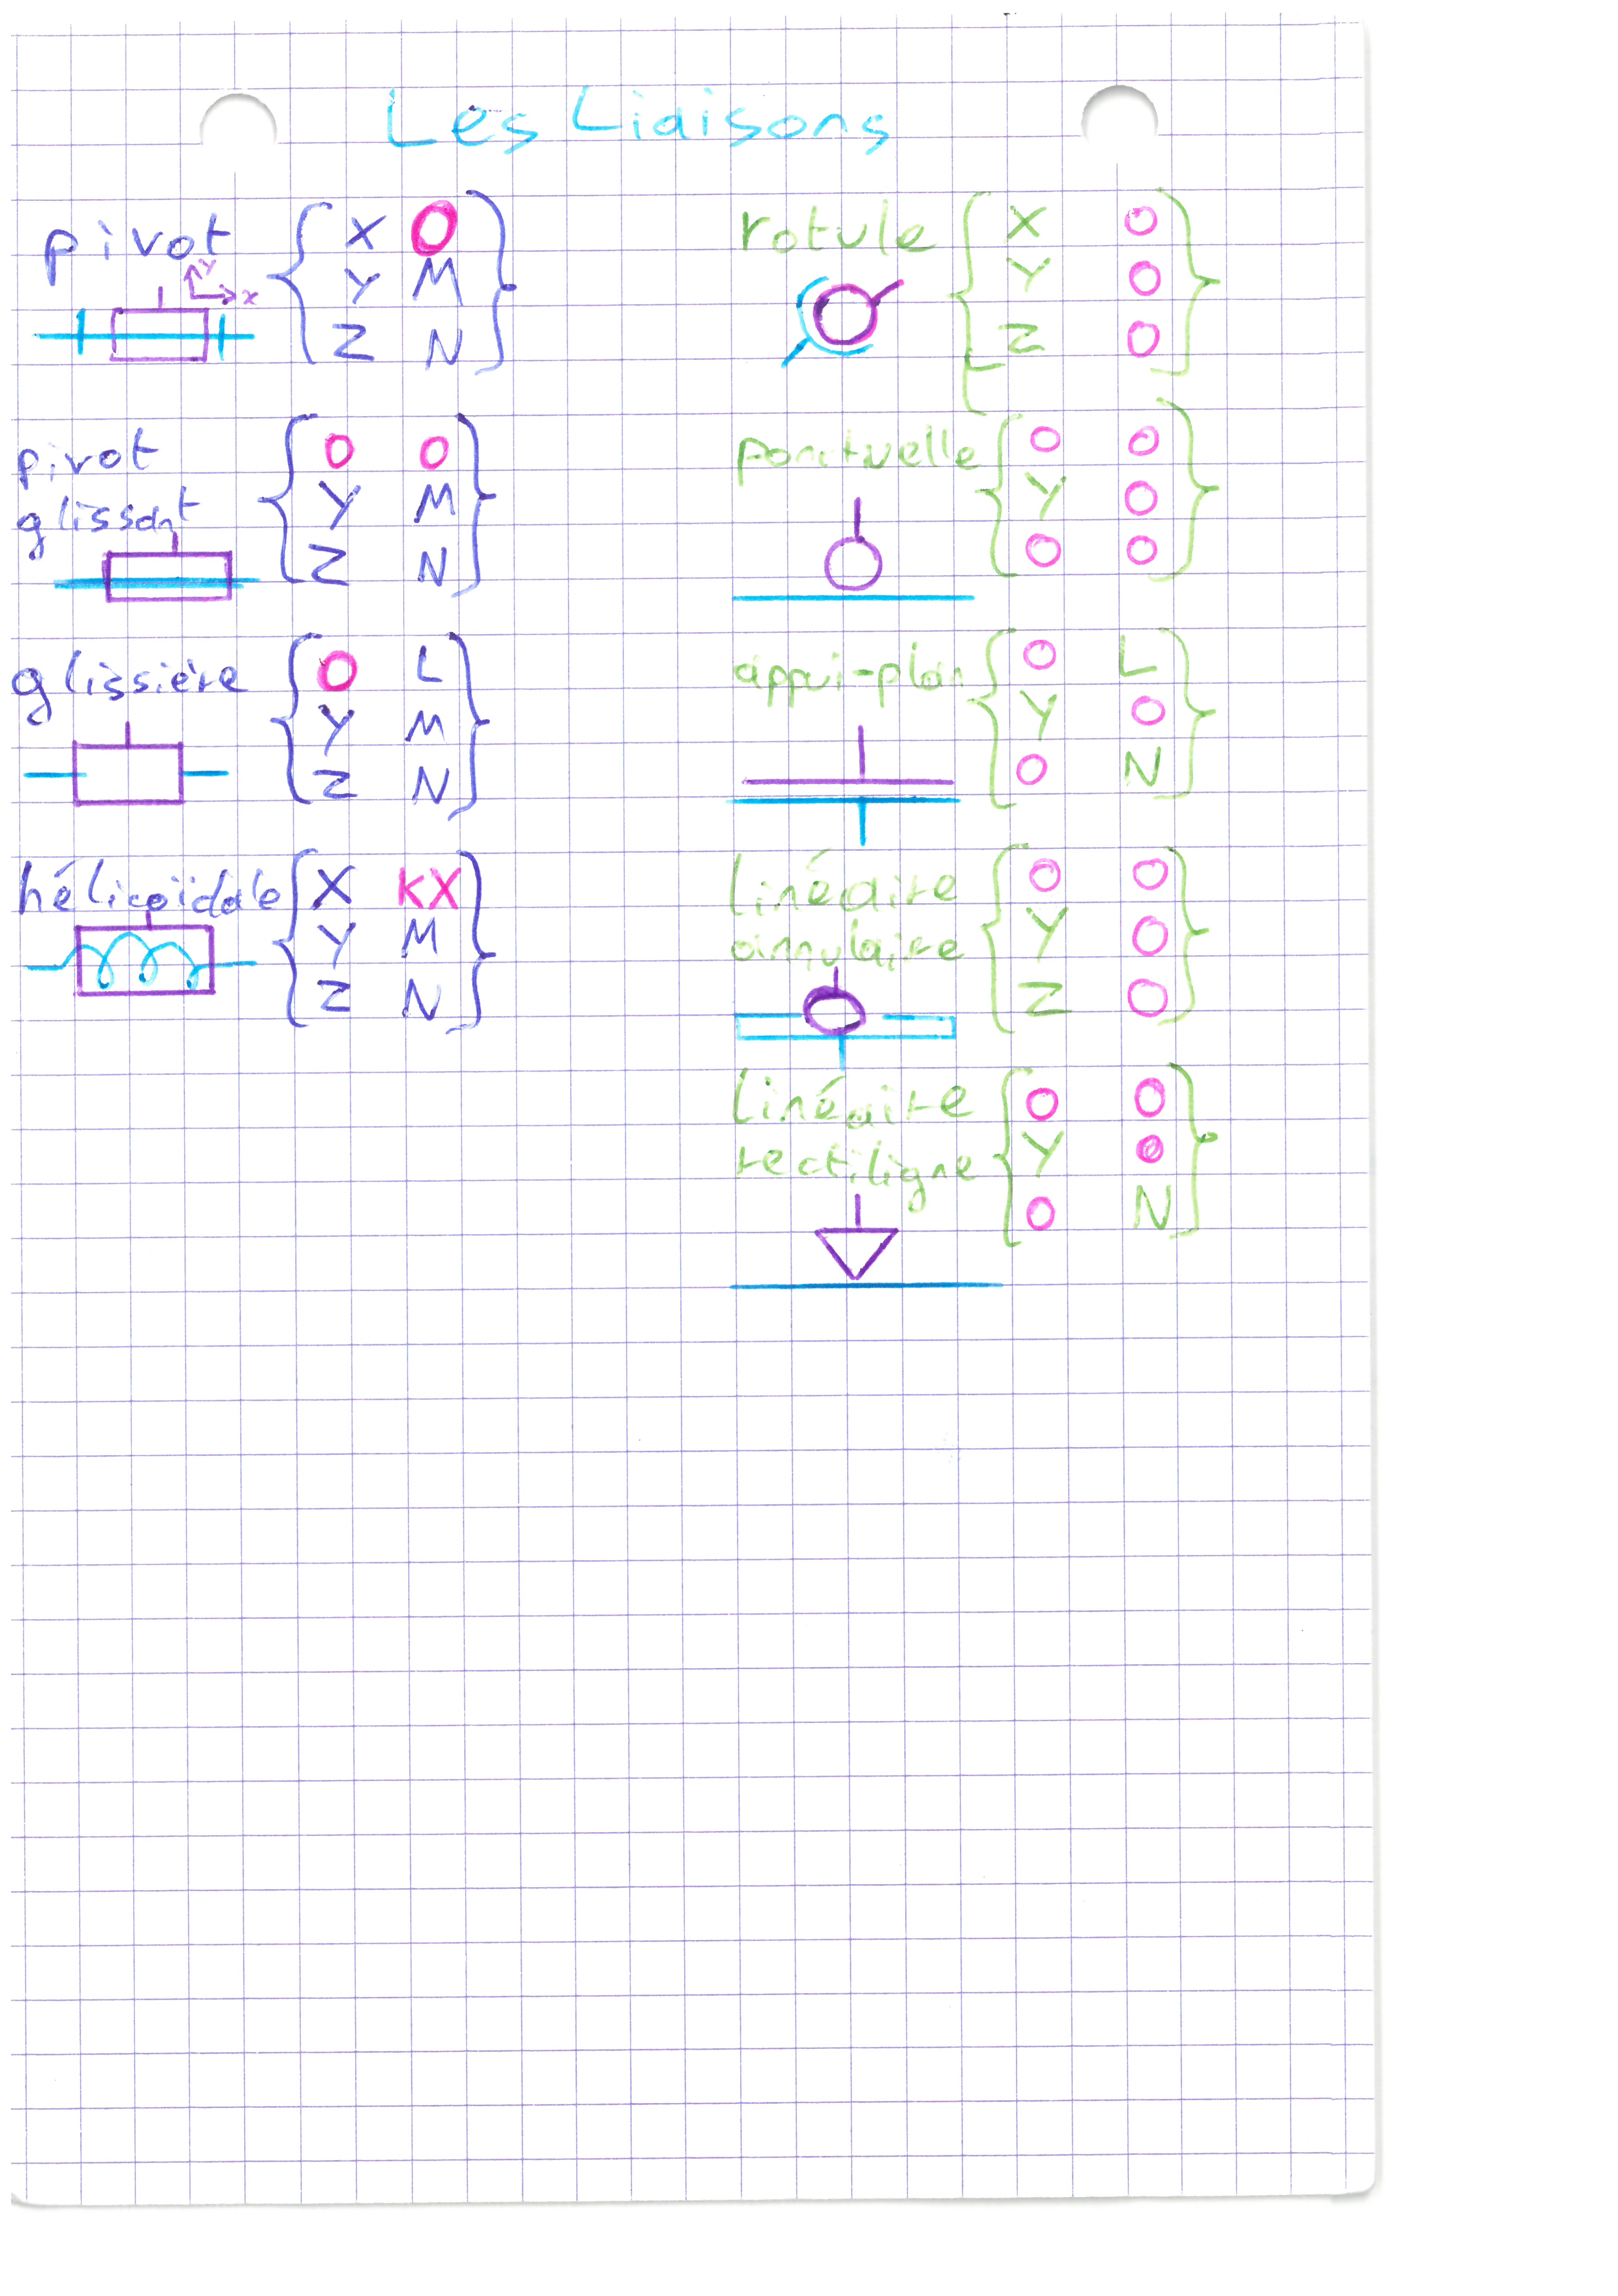 Les Liaisons
pivot
y
x
{ X O }
{ Y M }
{ Z N }
pivot
glissant
{ O O }
{ Y M }
{ Z N }
glissière
{ O L }
{ Y M }
{ Z N }
hélicoïdale
{ X KX }
{ Y M }
{ Z N }
rotule
{ X O }
{ Y O }
{ Z O }
ponctuelle
{ O O }
{ Y O }
{ O O }
appui-plan
{ O L }
{ Y O }
{ O N }
linéaire
annulaire
{ O O }
{ Y O }
{ Z O }
linéaire
rectiligne
{ O O }
{ Y O }
{ O N }